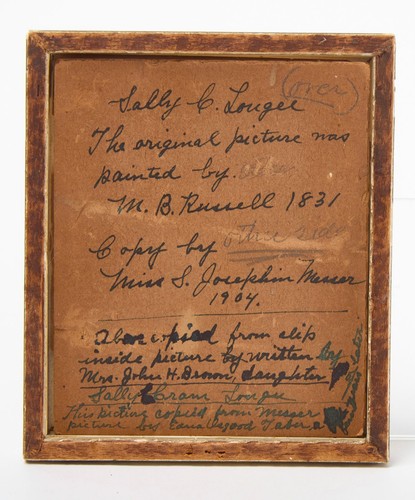 (over)
Sally C. Lougee
The original picture was
painted by.
M. B. Russell 1831
Copy by other side
Miss S. Josephin Messer
1904.
Above copied from slip
inside picture by written by
Mrs. John H. Brown, daughter of
Sally Cram Lougee
This being copied from Messer
picture by Lena Osgood Taber, a